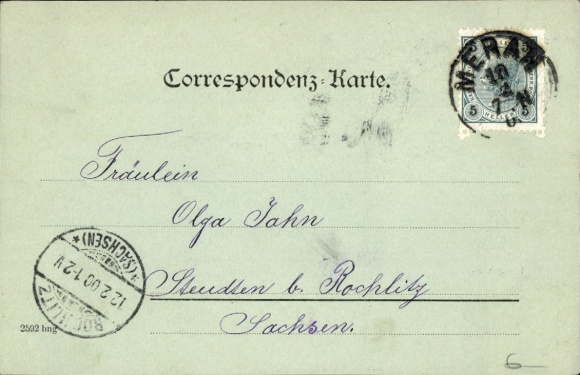 Correspondenz-Karte.
MERAN
10
2
5 HELLER 5
Fräulein
Olga Jahn
Steudten b. Rochlitz
Sachsen.
ROCHLITZ
*(SACHSEN)*
12.2.00.1-2 N
2592 bng
6